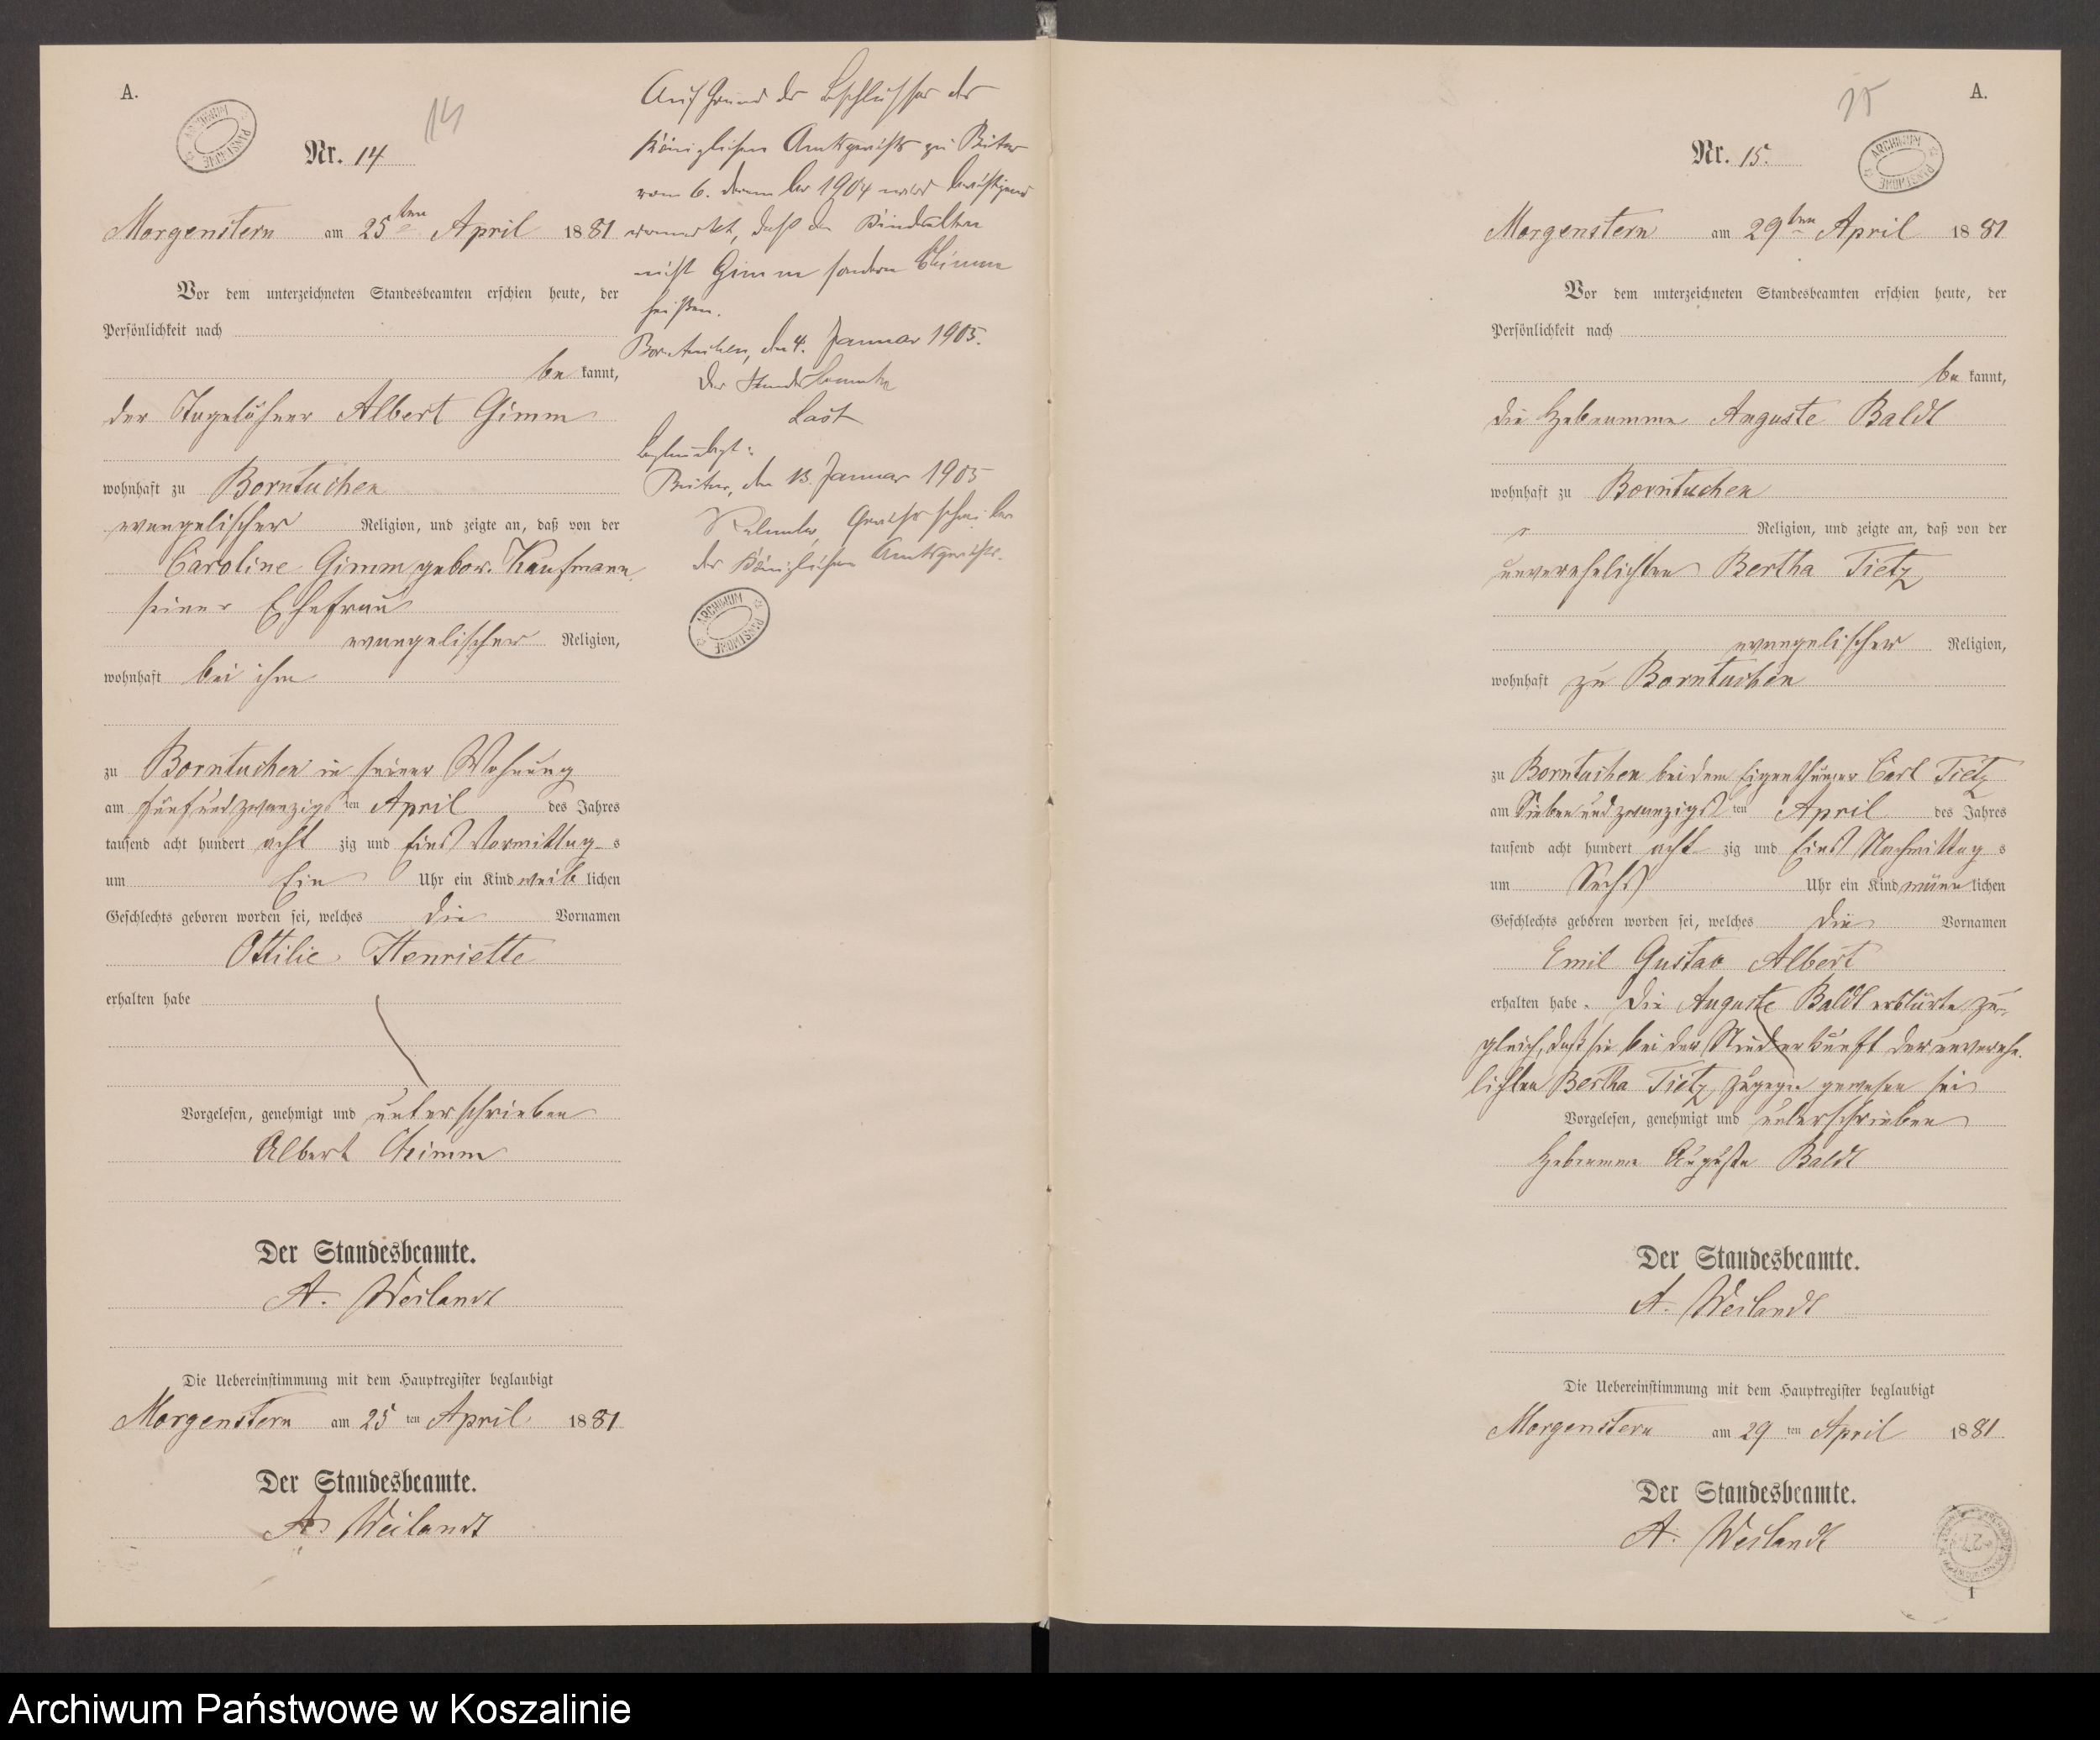 A.
ARCHIWUM PAŃSTWOWE
14
Nr. 14
Morgenstern am 25ten April 1881
Vor dem unterzeichneten Standesbeamten erschien heute, der
Persönlichkeit nach
be kannt,
der Tagelöhner Albert Gimm
wohnhaft zu Borntuchen
evangelischer Religion, und zeigte an, daß von der
Caroline Gimm gebor. Kaufmann
seiner Ehefrau
evangelischer Religion,
wohnhaft bei ihm
zu Borntuchen in seiner Wohnung
am fünfundzwanzigs ten April des Jahres
tausend acht hundert acht zig und Eins Vormittag s
um Ein Uhr ein Kind weib lichen
Geschlechts geboren worden sei, welches die Vornamen
Ottilie Henriette
erhalten habe
Vorgelesen, genehmigt und unterschrieben
Albert Gimm
Der Standesbeamte.
A. Weilandt
Die Uebereinstimmung mit dem Hauptregister beglaubigt
Morgenstern am 25 ten April 1881
Der Standesbeamte.
A. Weilandt
Auf Grund des Beschlusses des
Königlichen Amtsgerichts zu Bütow
vom 6. 1904 wird berichtigend
vermerkt, daß die Kindeseltern
nicht Gimm sondern
heißen.
Borntuchen, den 4. Januar 1905.
Der Standesbeamte
Last
Beglaubigt:
Bütow, den 13. Januar 1905
Gerichtsschreiber
des Königlichen Amtsgerichts.
ARCHIWUM PAŃSTWOWE
15
A.
Nr. 15.
ARCHIWUM PAŃSTWOWE
Morgenstern am 29ten April 1881
Vor dem unterzeichneten Standesbeamten erschien heute, der
Persönlichkeit nach
be kannt,
die Hebeamme Auguste Baldt
wohnhaft zu Borntuchen
Religion, und zeigte an, daß von der
unverehelichten Bertha Tietz
evangelischer Religion,
wohnhaft zu Borntuchen
zu Borntuchen bei dem Eigenthümer Carl Tietz
am Siebenundzwanzigs ten April des Jahres
tausend acht hundert acht zig und Eins Nachmittag s
um Sechs Uhr ein Kind männ lichen
Geschlechts geboren worden sei, welches die Vornamen
Emil Gustav Albert
erhalten habe. Die Auguste Baldt erklärte zu-
gleich, daß sie bei der Niederkunft der unverehe-
lichten Bertha Tietz zugegen gewesen sei
Vorgelesen, genehmigt und unterschrieben
Hebeamme Auguste Baldt
Der Standesbeamte.
A. Weilandt
Die Uebereinstimmung mit dem Hauptregister beglaubigt
Morgenstern am 29 ten April 1881
Der Standesbeamte.
A. Weilandt
1
Archiwum Państwowe w Koszalinie